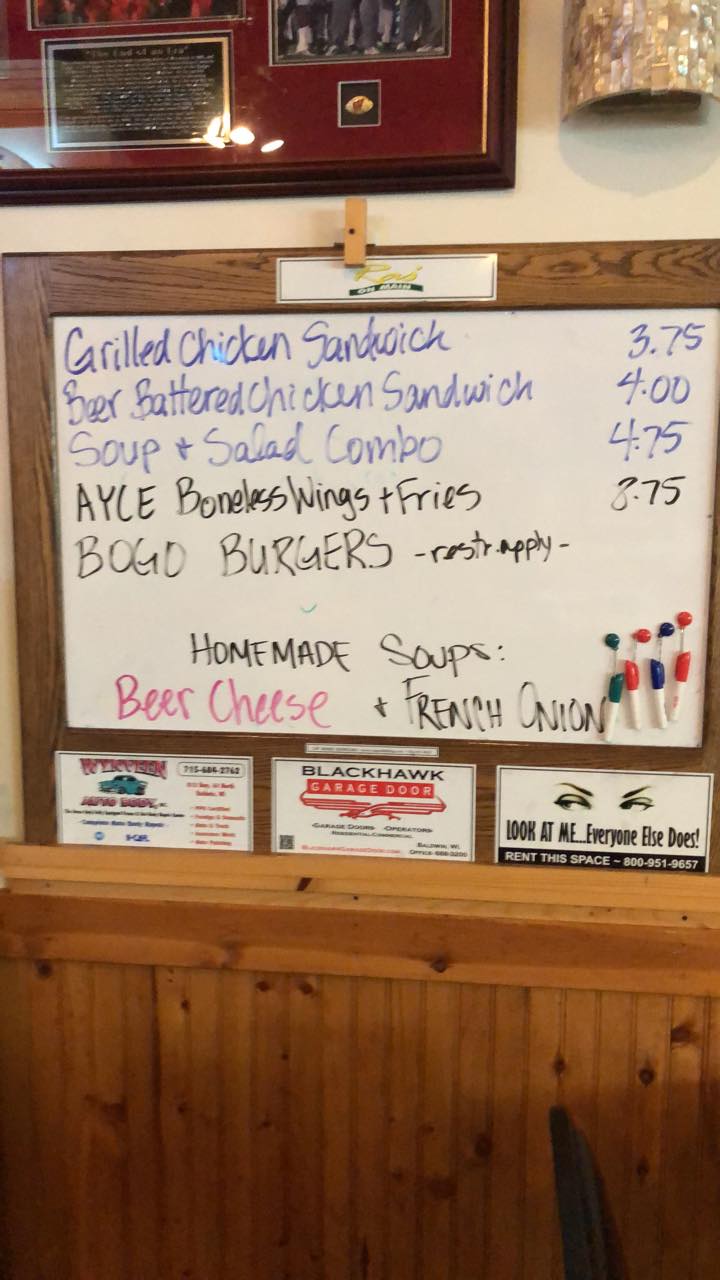 "The End of an Era"
ON MAIN
Grilled Chicken Sandwich 3.75
Beer Battered Chicken Sandwich 4.00
Soup + Salad Combo 4.75
AYCE Boneless Wings + Fries 8.75
BOGO BURGERS -restr. apply-
HOMEMADE Soups:
Beer Cheese + FRENCH ONION
715-684-2762
AUTO BODY, INC.
BLACKHAWK
GARAGE DOOR
-GARAGE DOORS- -OPERATORS-
RESIDENTIAL-COMMERCIAL
BALDWIN, WI.
OFFICE- 688-3200
LOOK AT ME...Everyone Else Does!
RENT THIS SPACE ~ 800-951-9657